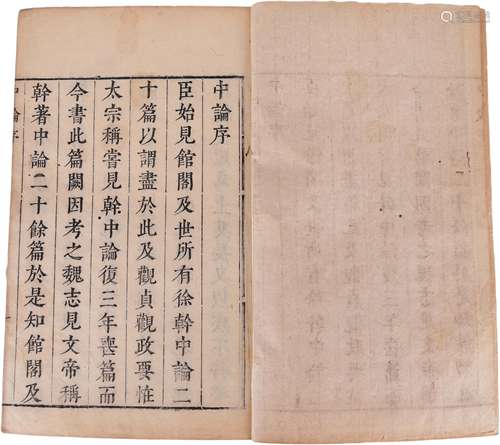 中論序
臣始見館閣及世所有徐幹中論二
十篇以謂盡於此及觀貞觀政要恠
太宗稱嘗見幹中論復三年喪篇而
今書此篇闕因考之魏志見文帝稱
幹著中論二十餘篇於是知館閣及
中論序